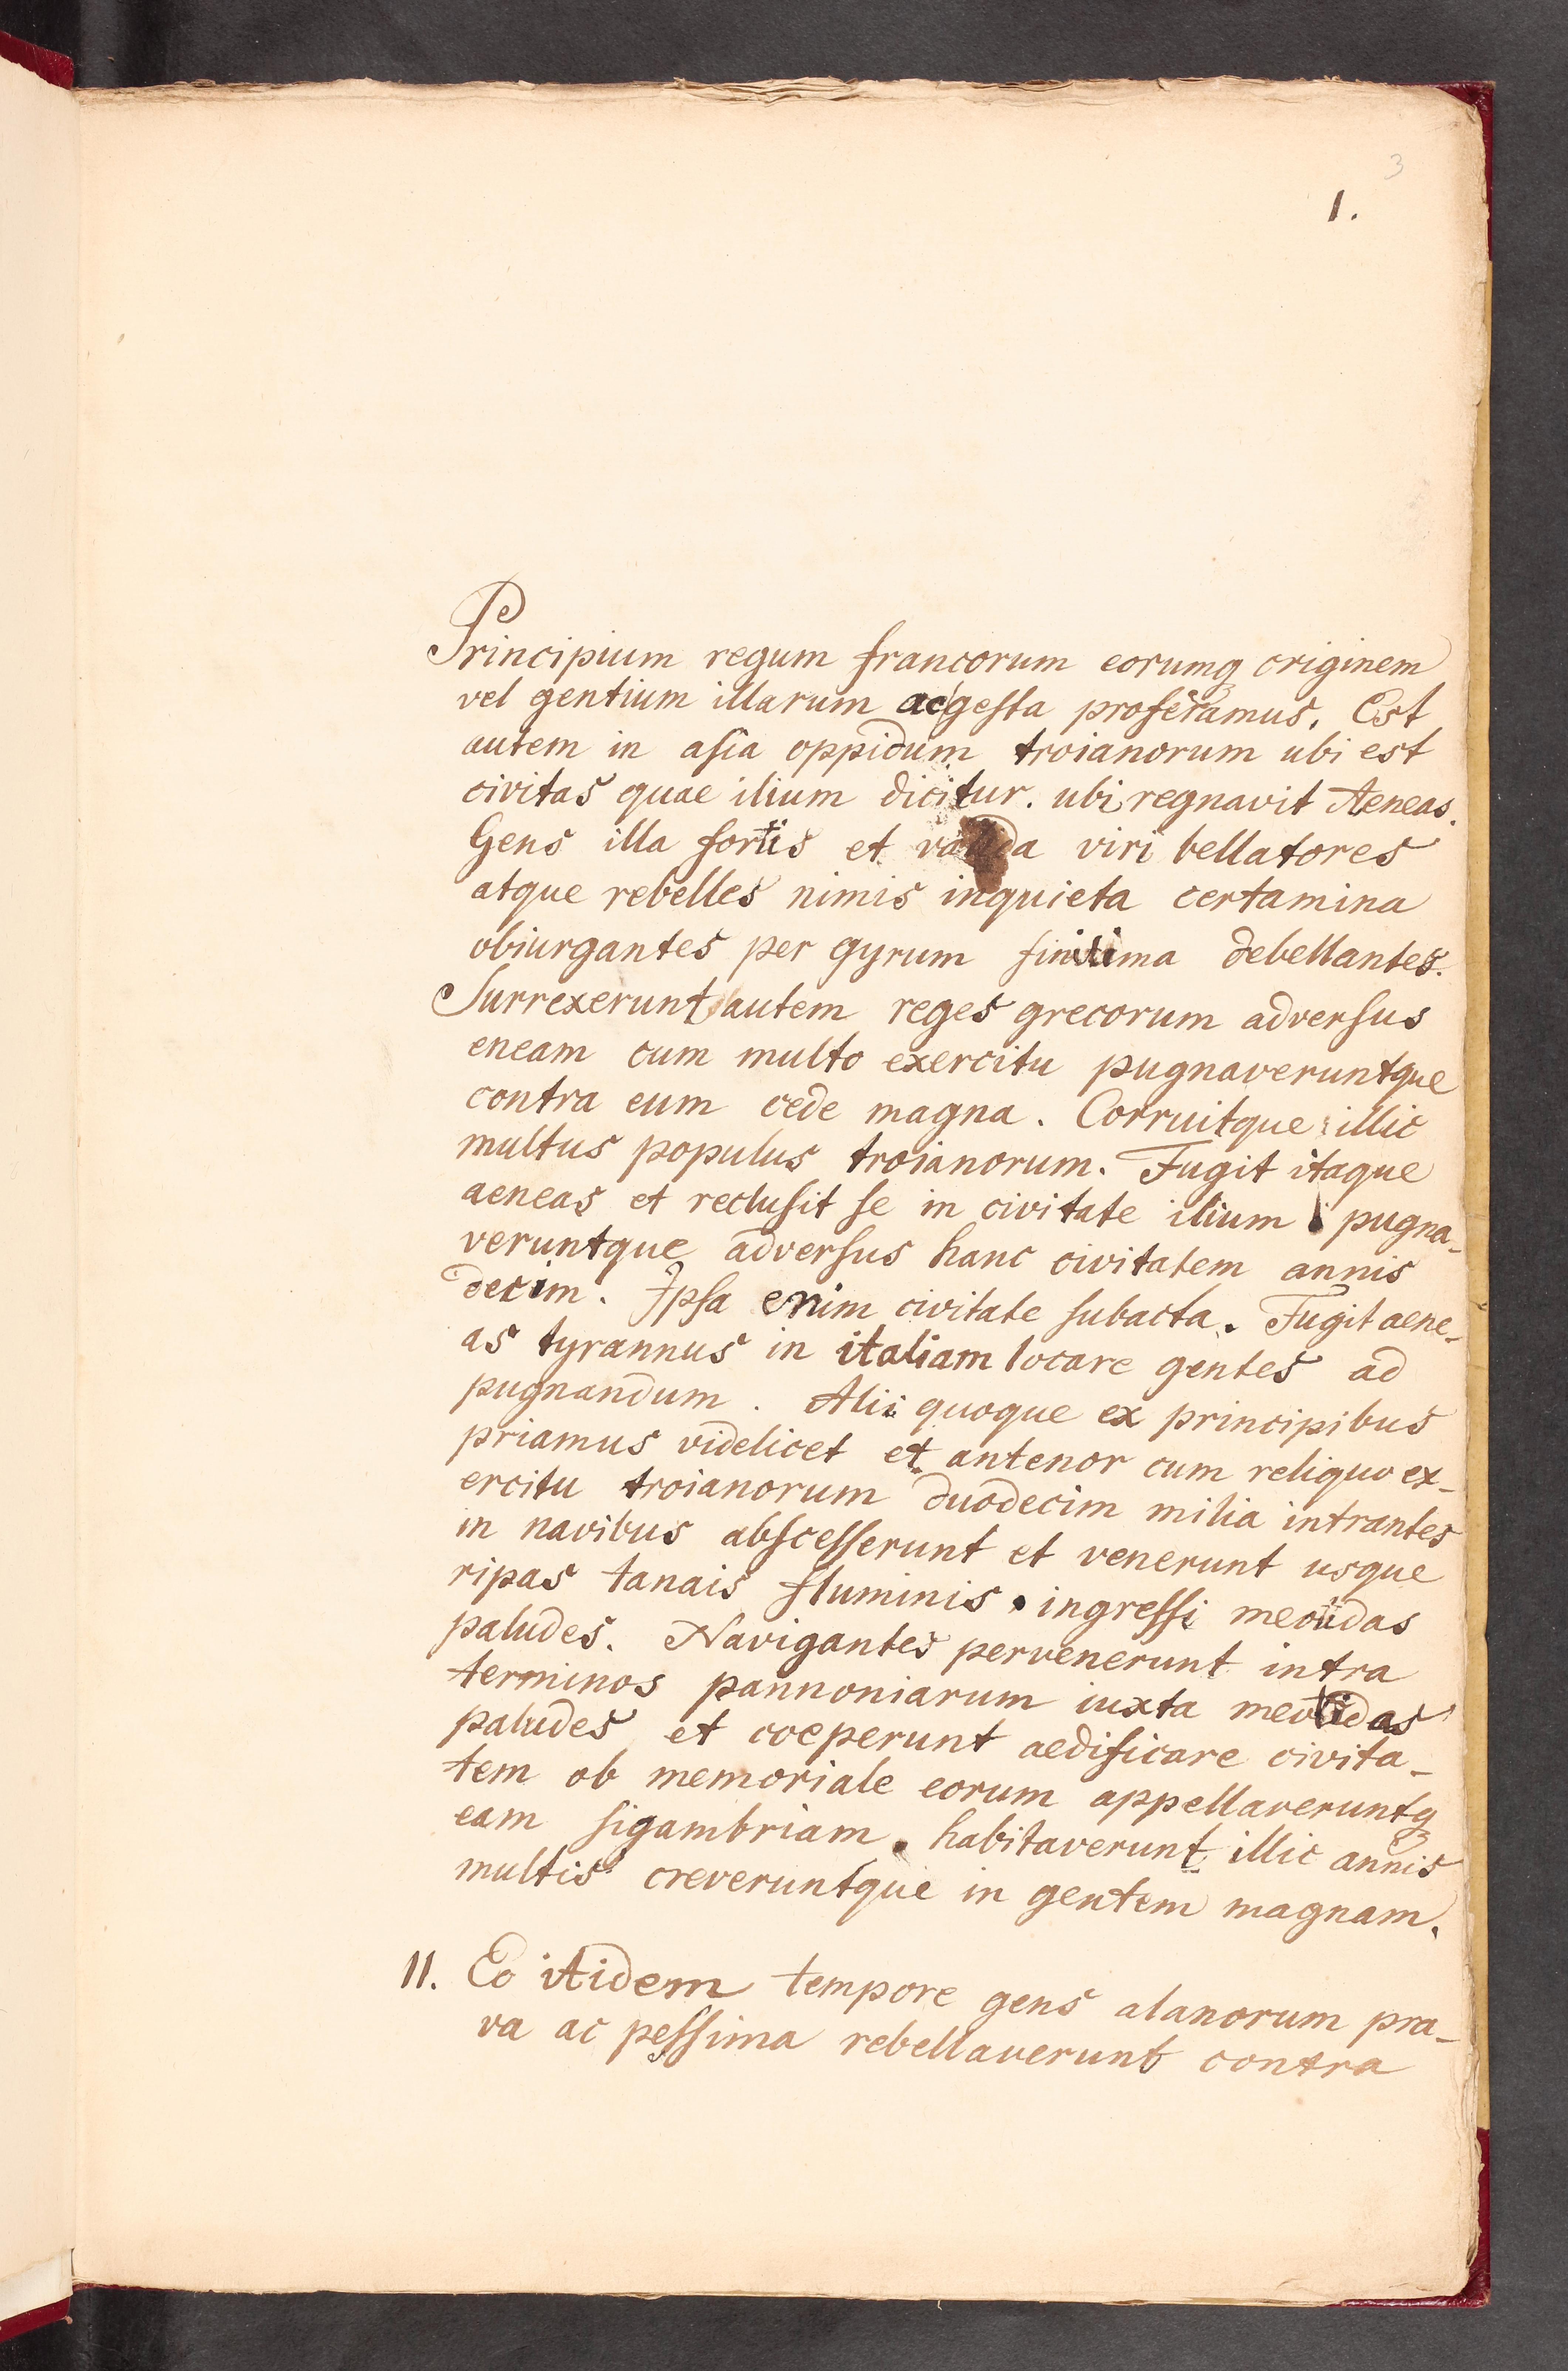 3
1.
Principium regum francorum eorumq originem
vel gentium illarum ac gesta proferamus. Est
autem in asia oppidum troianorum ubi est
civitas quae ilium dicitur. ubi regnavit Aeneas.
Gens illa fortis et valida viri bellatores
atque rebelles nimis inquieta certamina
obiurgantes per gyrum finitima debellantes.
Surrexerunt autem reges grecorum adversus
eneam cum multo exercitu pugnaveruntque
contra eum cede magna. Corruitque illic
multus populus troianorum. Fugit itaque
aeneas et reclusit se in civitate ilium pugna-
veruntque adversus hanc civitatem annis
decim. Ipsa enim civitate subacta. Fugit aene-
as tyrannus in italiam locare gentes ad
pugnandum. Alii quoque ex principibus
priamus videlicet et antenor cum reliquo ex-
ercitu troianorum duodecim milia intrantes
in navibus abscesserunt et venerunt usque
ripas tanais fluminis. ingressi meotidas
paludes. Navigantes pervenerunt intra
terminos pannoniarum iuxta meotidas
paludes et coeperunt aedificare civita-
tem ob memoriale eorum appellaveruntq
eam sigambriam. habitaverunt illic annis
multis creveruntque in gentem magnam.
II. Eo itidem tempore gens alanorum pra-
va ac pessima rebellaverunt contra